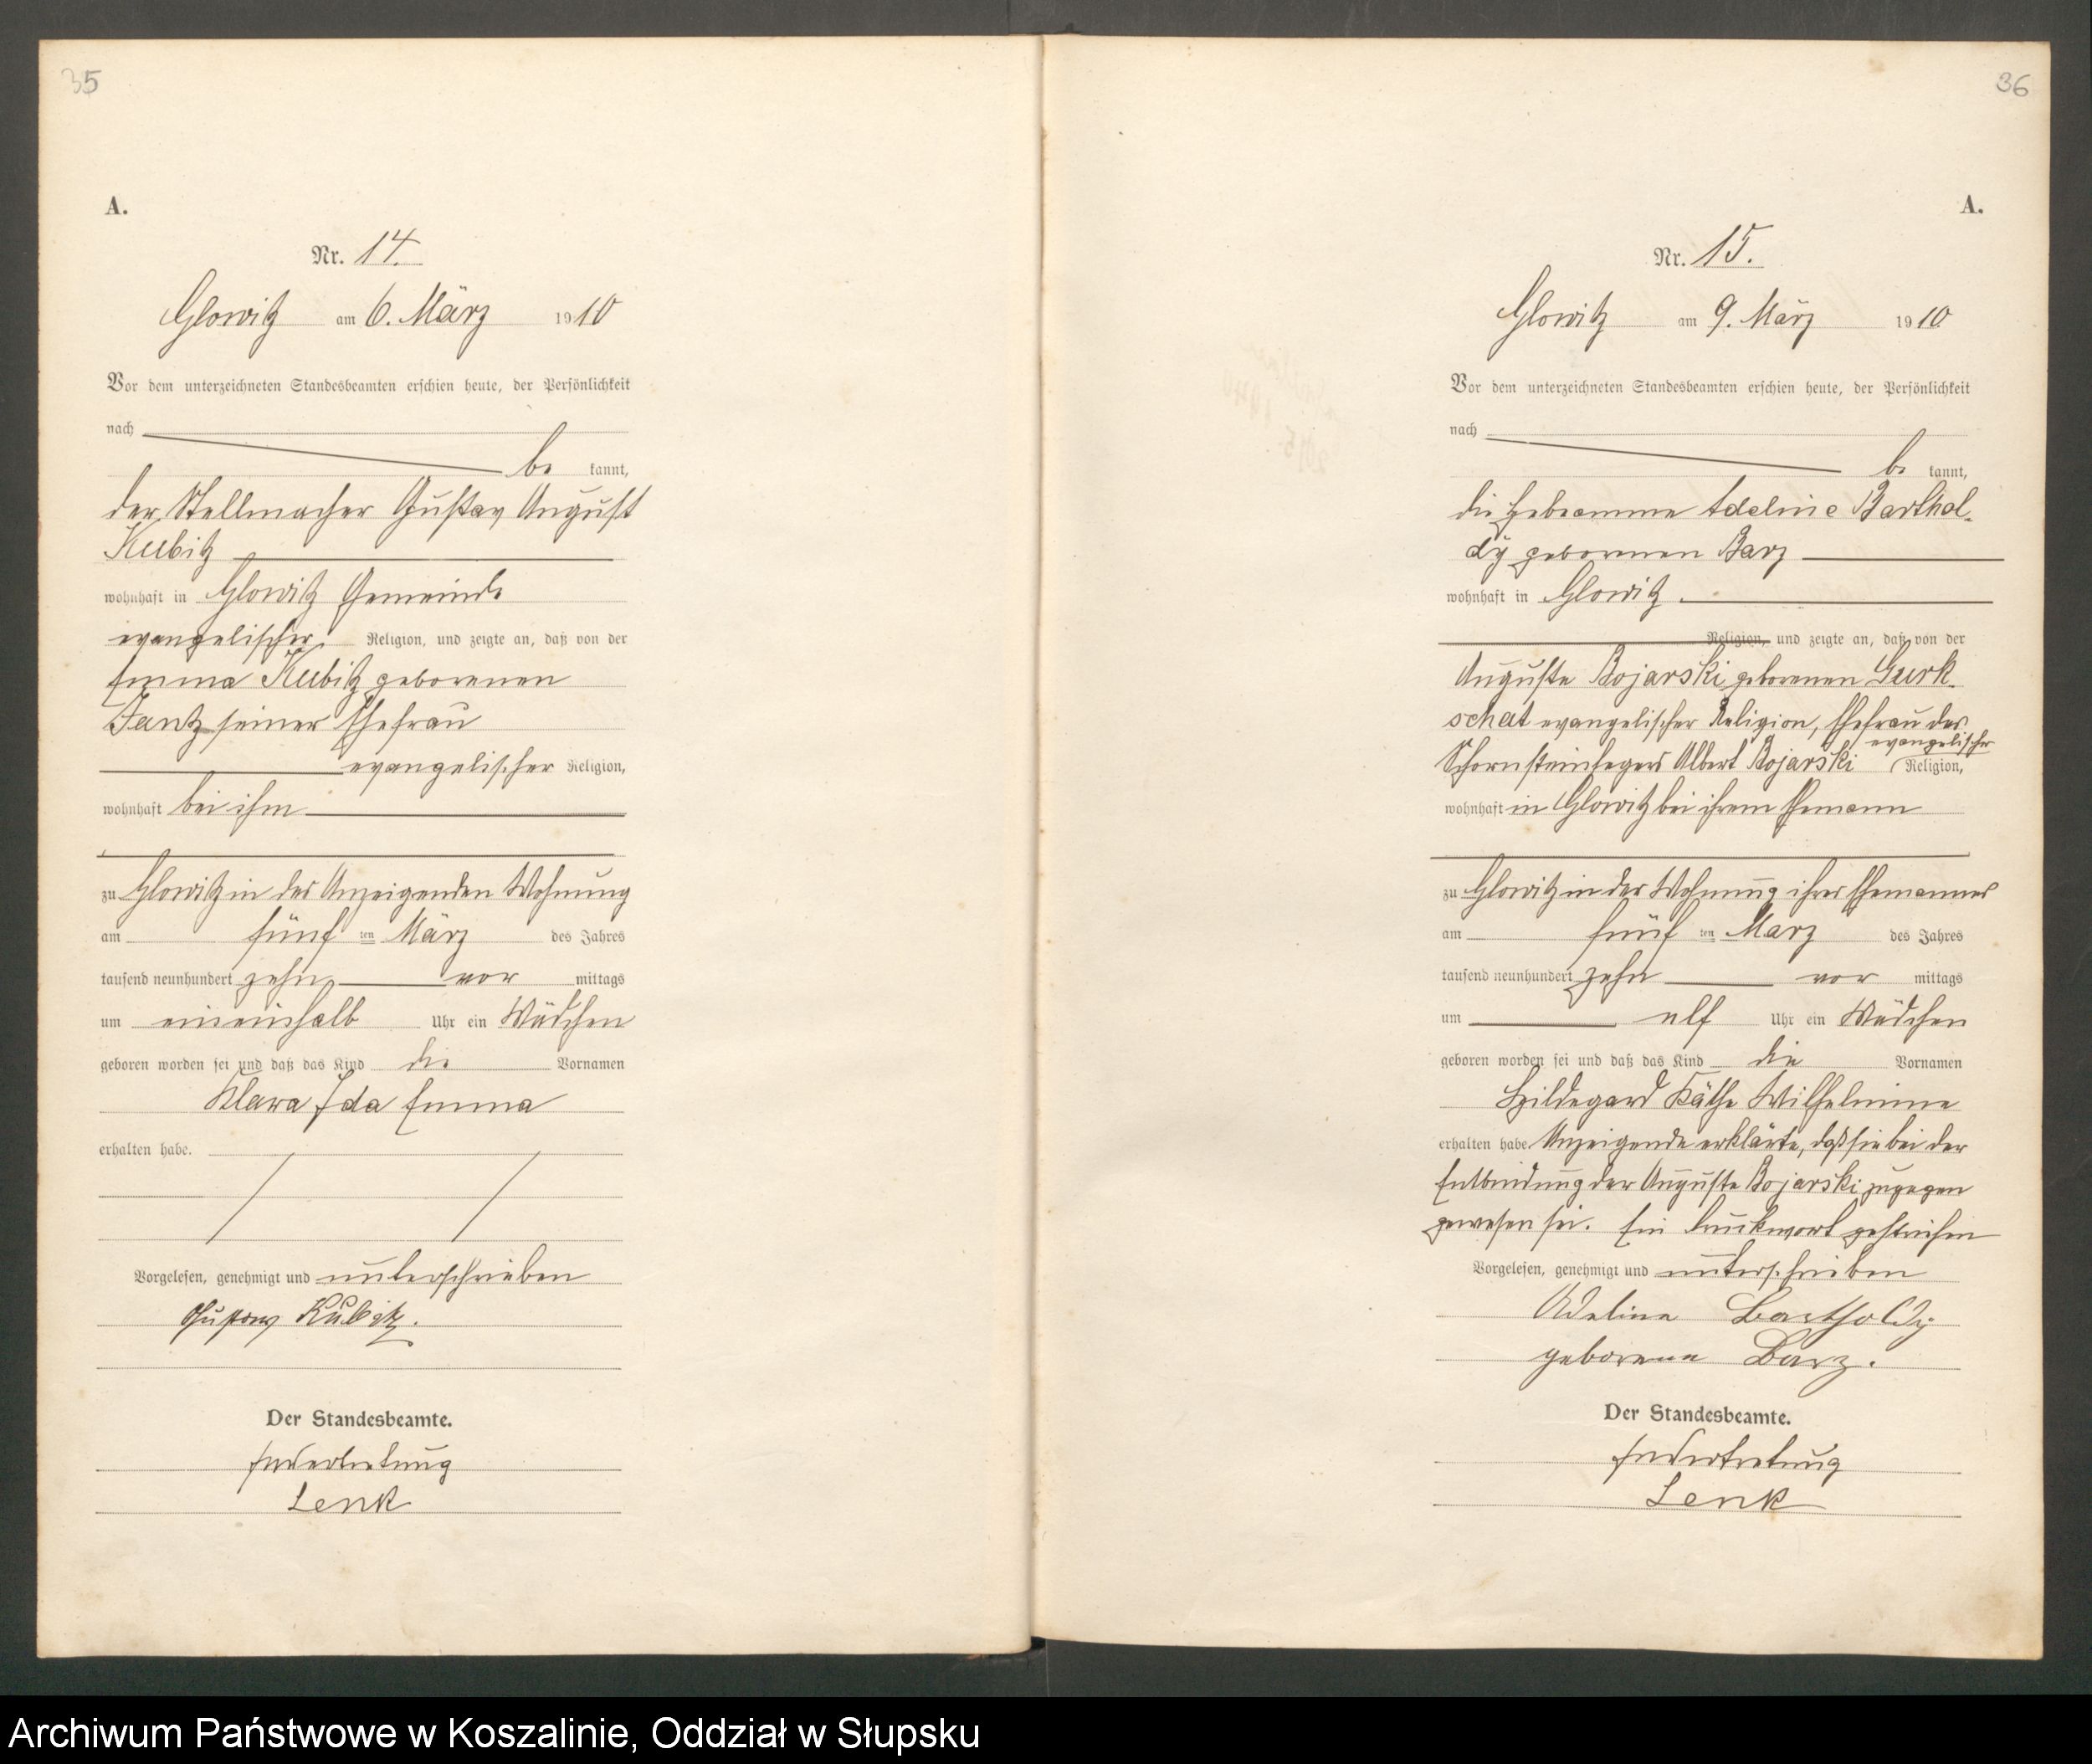 35
A.
Nr. 14.
Glowitz am 6. März 1910
Vor dem unterzeichneten Standesbeamten erschien heute, der Persönlichkeit
nach
be kannt,
der Stellmacher Gustav August
Kubitz
wohnhaft in Glowitz Gemeinde
evangelischer Religion, und zeigte an, daß von der
Emma Kubitz geborenen
Jantz seiner Ehefrau
evangelischer Religion,
wohnhaft bei ihm
zu Glowitz in des Anzeigenden Wohnung
am fünf ten März des Jahres
tausend neunhundert zehn vor mittags
um eineinhalb Uhr ein Mädchen
geboren worden sei und daß das Kind die Vornamen
Klara Ida Emma
erhalten habe.
Vorgelesen, genehmigt und unterschrieben
Gustav Kubitz.
Der Standesbeamte.
In Vertretung
Lenk
36
A.
Nr. 15.
Glowitz am 9. März 1910
Vor dem unterzeichneten Standesbeamten erschien heute, der Persönlichkeit
nach
be kannt,
die Hebeamme Adeline Barthol-
dy geborenen Barz
wohnhaft in Glowitz.
Religion, und zeigte an, daß von der
Auguste Bojarski geborenen Gurk-
schat evangelischer Religion, Ehefrau des
evangelischer
Schornsteinfegers Albert Bojarski Religion,
wohnhaft in Glowitz bei ihrem Ehemann
zu Glowitz in der Wohnung ihres Ehemannes
am fünf ten März des Jahres
tausend neunhundert zehn vor mittags
um elf Uhr ein Mädchen
geboren worden sei und daß das Kind die Vornamen
Hildegard Käthe Wilhelmine
erhalten habe. Anzeigende erklärte, daß sie bei der
Entbindung der Auguste Bojarski zugegen
gewesen sei. Ein Druckwort gestrichen
Vorgelesen, genehmigt und unterschrieben
Adeline Bartholdy
geborene Barz.
Der Standesbeamte.
In Vertretung
Lenk
Archiwum Państwowe w Koszalinie, Oddział w Słupsku